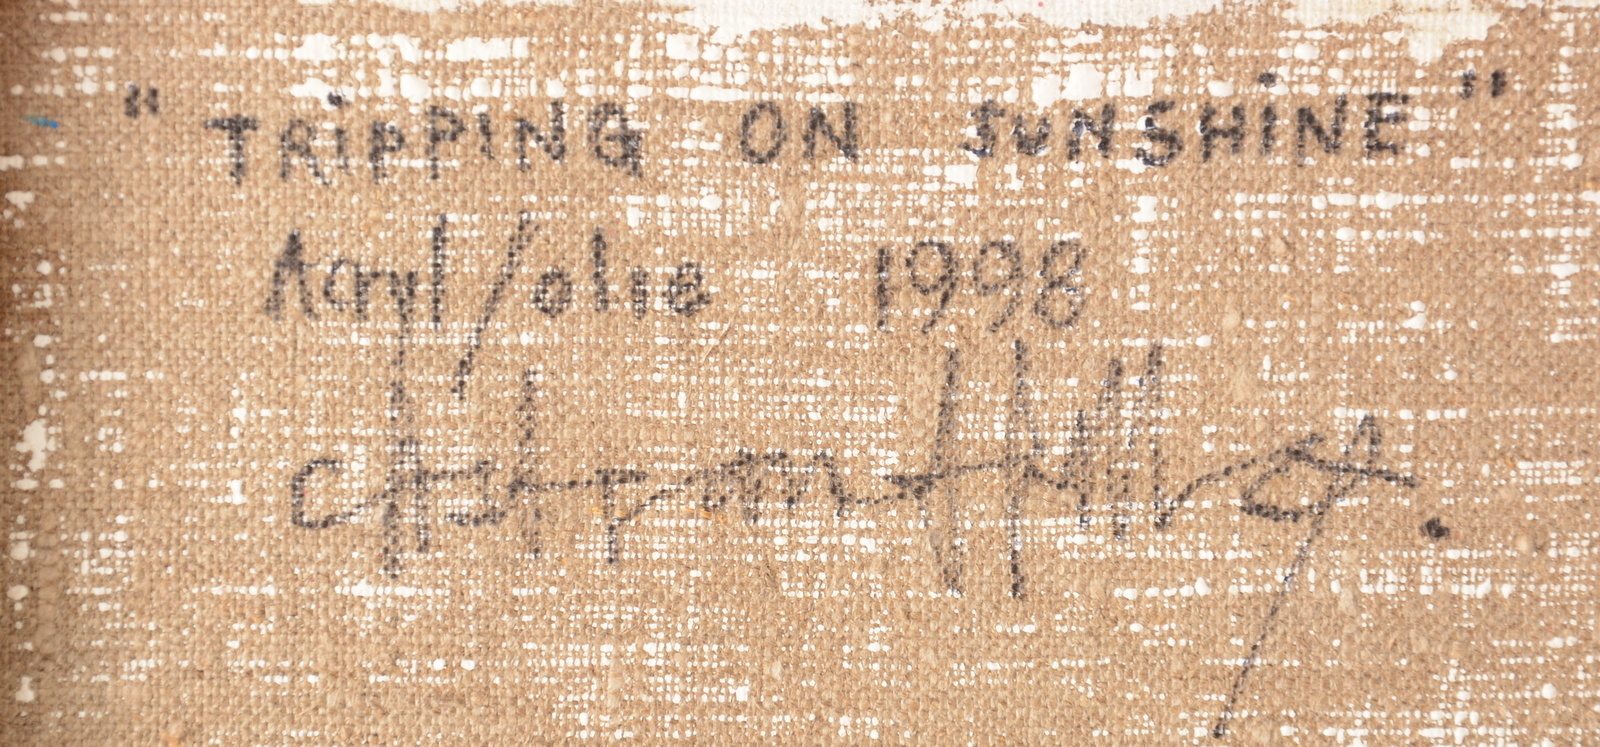 "TRiPPING ON SUNSHiNE"
Acryl/olie 1998